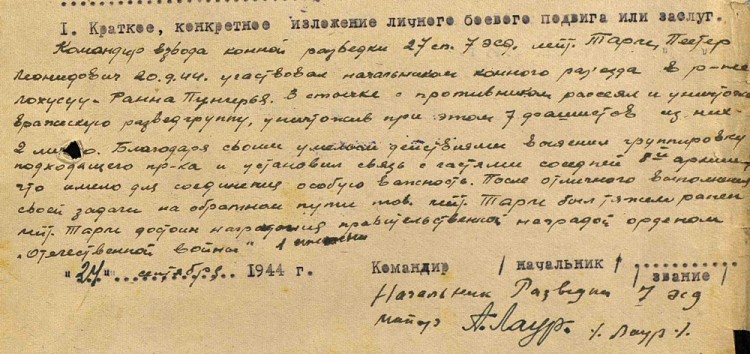 I. Краткое, конкретное изложение личного боевого подвига или заслуг.
Командир взвода конной разведки 27 сп. 7 эсд. лейт. Тарги, Пеетер
Леонидович 20.9.44. участвовал начальником конного раз'езда в р-не
Лохусуу - Ранна Пунгерья. В стычке с противником рассеял и уничтожил
вражескую разведгруппу, уничтожив при этом 7 фашистов из них
2 лично. Благодаря своим умелым действиями выяснил группировку
подходящего пр-ка и установил связь с частями соседней 8ой армии,
что имело для соединения особую важность. После отличного выполнения
своей задачи на обратном пути тов. лейт. Тарги был тяжело ранен
Лейт. Тарги достоин награждения правительственной наградой орденом
„Отечественной войны" 1 степени
"27" сентября 1944 г. Командир /начальник/
/звание/
Начальник Разведки 7 эсд
майор А.Лаур. /. Лаур ./